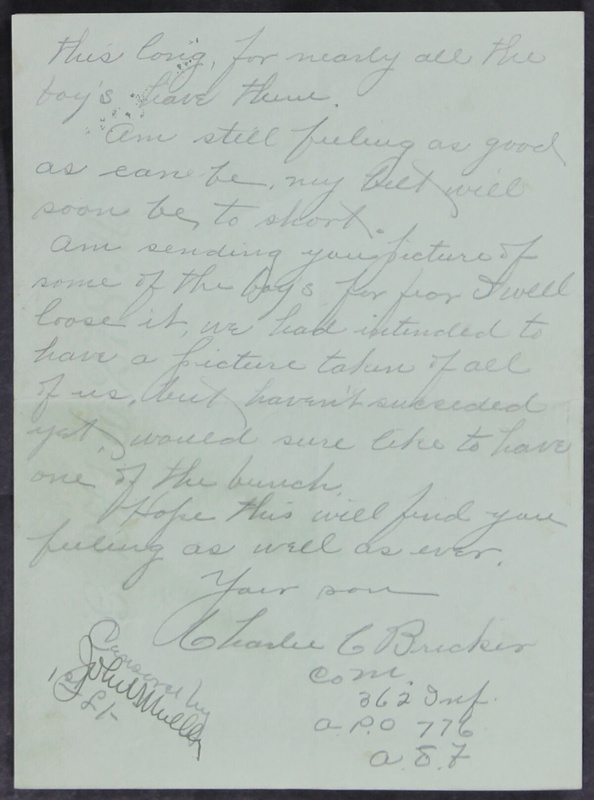 this long, for nearly all the
boy's have them.
Am still feeling as good
as can be, my belt will
soon be to short.
Am sending you picture of
some of the boys for fear I will
loose it, we had intended to
have a picture taken of all
of us, but haven't succeded
yet, would sure like to have
one of the bunch.
Hope this will find you
feeling as well as ever.
Your son
Charlie C Bricker
Co M.
362 Inf.
A.P.O 776
A.E.F
Censored by
John Mueller
1st Lt